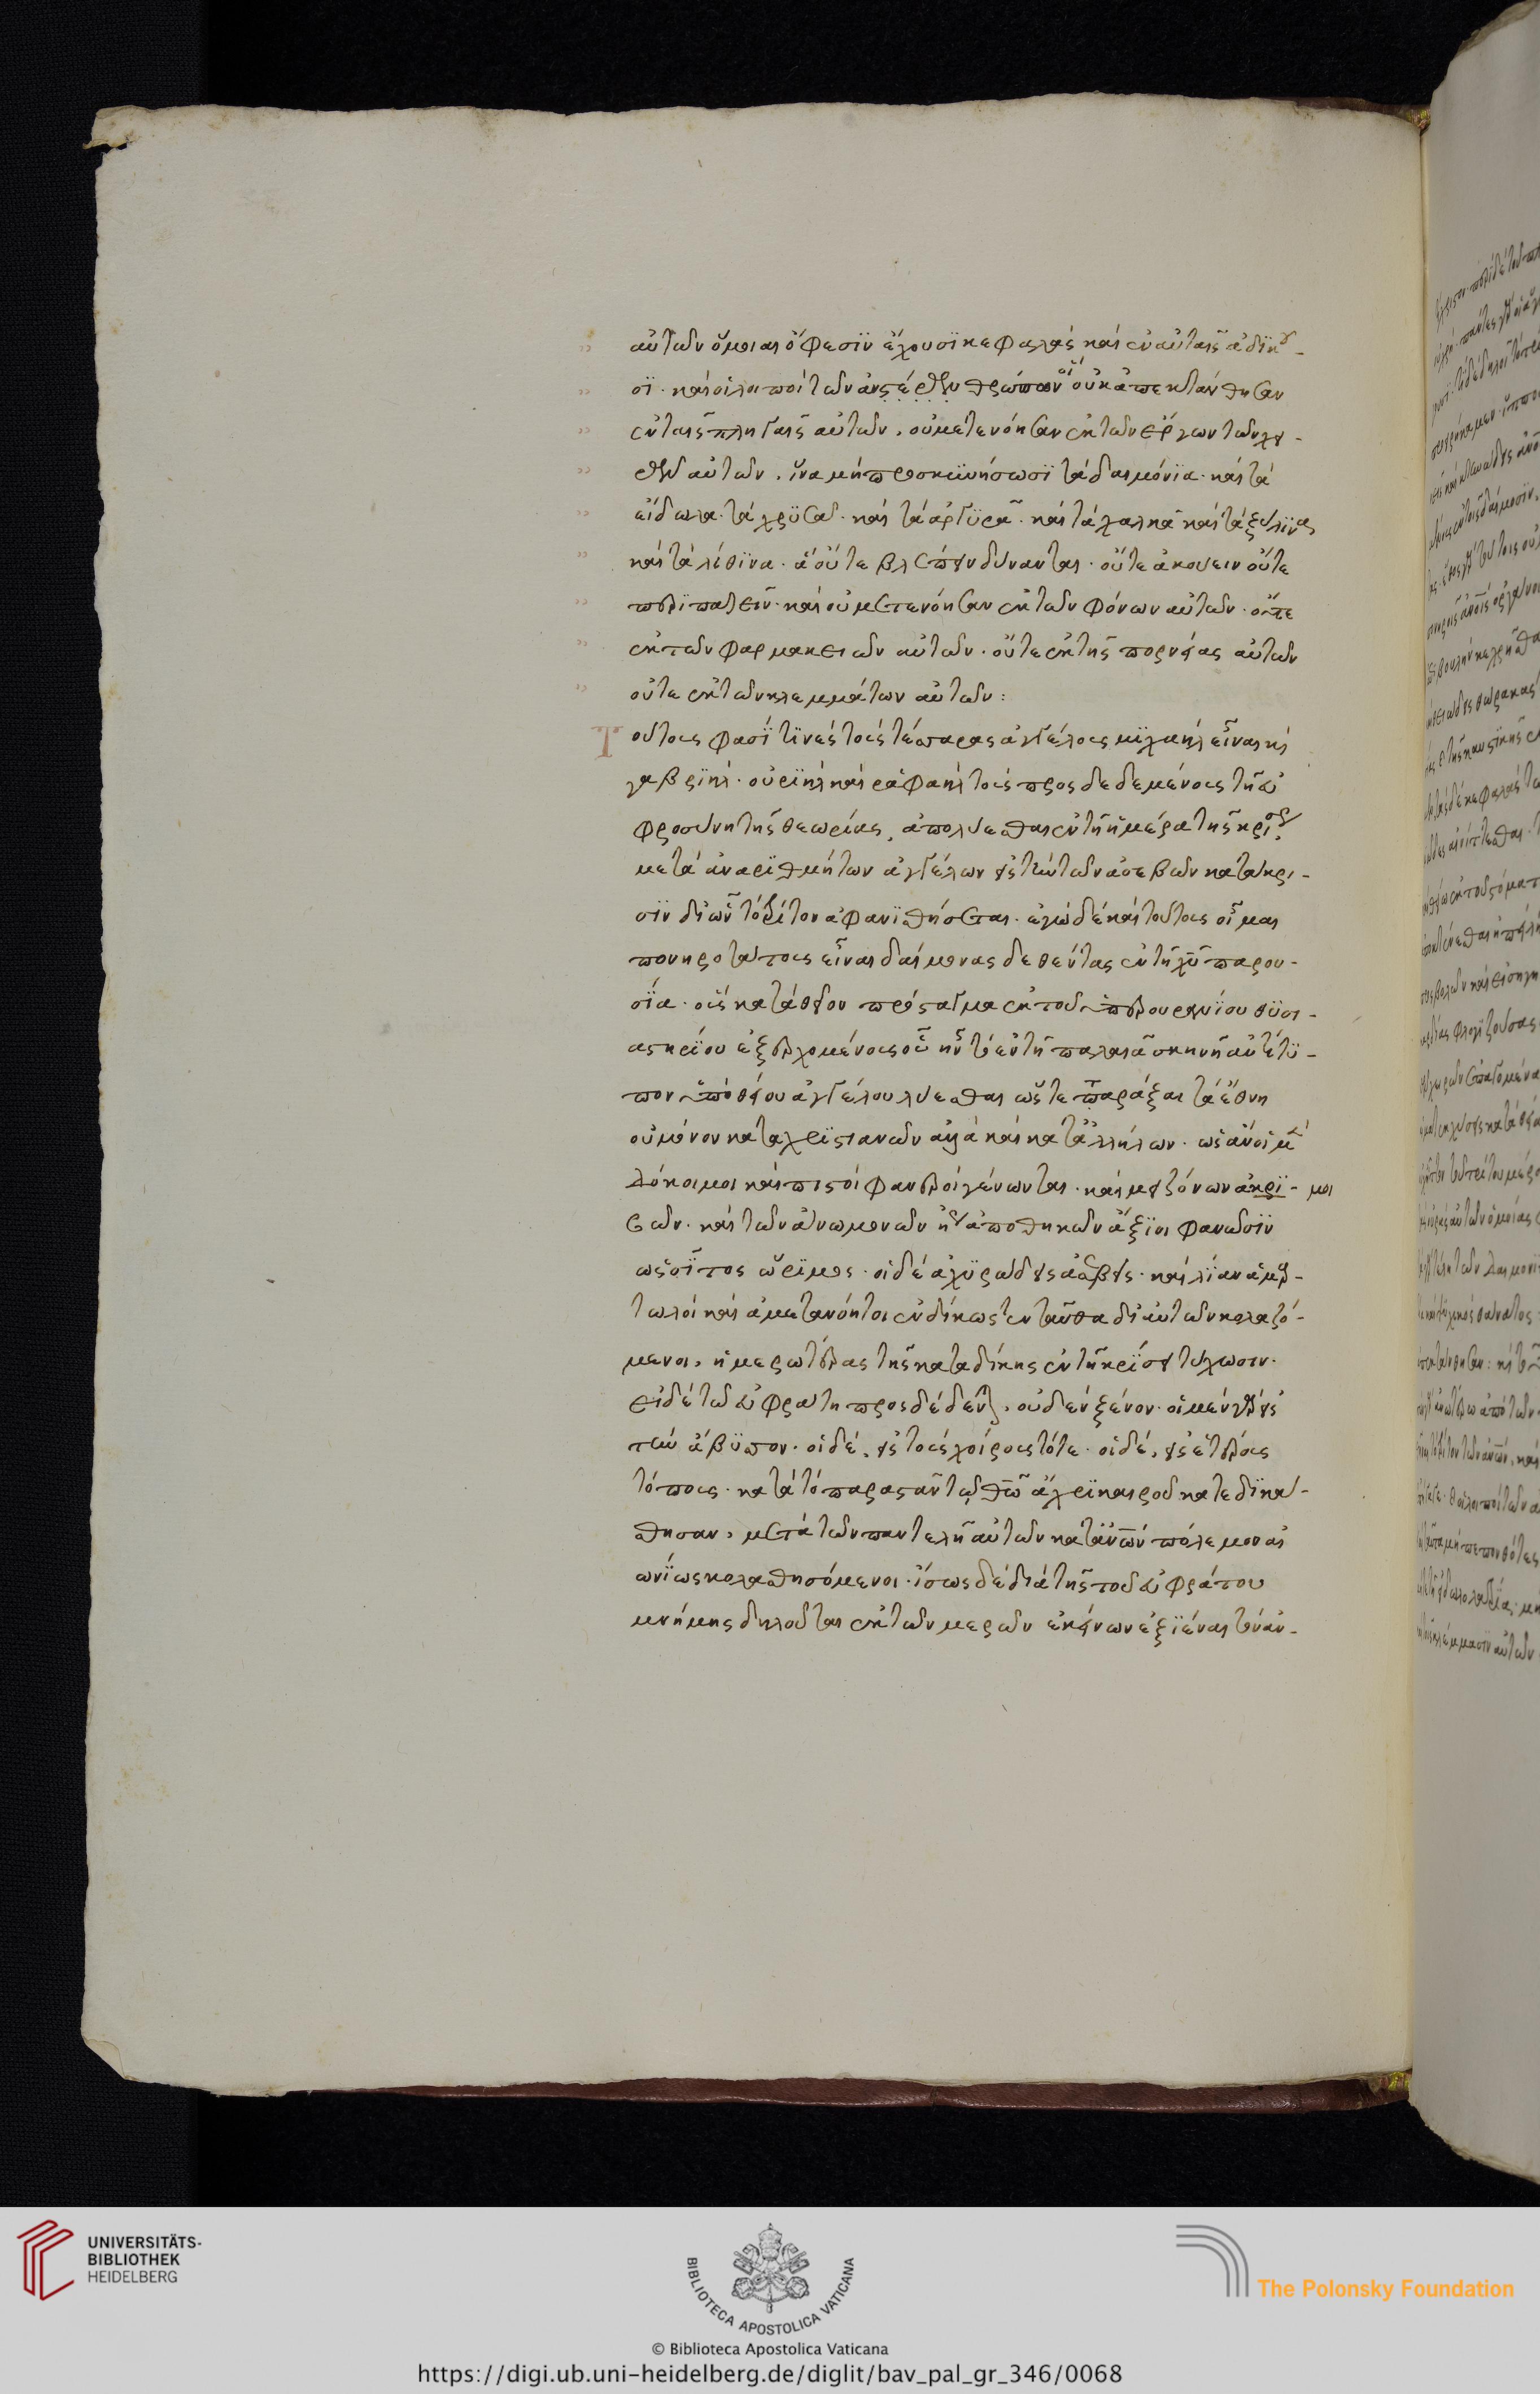 αὐτῶν ὅμοιαι ὄφεσϊν ἔχουσϊ κεφαλάς καὶ ἐν αὐταῖς ἀδϊκοῦ-
σϊ· καὶ οἱ λοιποὶ τῶν ἀνθρώπων οἳ οὐκ ἀπεκτάνθησαν
ἐν ταῖς πληγαῖς αὐτῶν, οὐ μετενόησαν ἐκ τῶν ἔργων τῶν χει-
ρῶν αὐτῶν, ἵνα μὴ προσκϋνήσωσϊ τὰ δαιμόνϊα· καὶ τὰ
εἴδωλα· τὰ χρϋσᾶ· καὶ τὰ ἀργϋρᾶ· καὶ τὰ χαλκᾶ καὶ τὰ ξύλϊνα,
καὶ τὰ λίθϊνα· ἃ οὔτε βλέπειν δύνανται· οὔτε ἀκούειν οὔτε
περϊπατεῖν· καὶ οὐ μετενόησαν ἐκ τῶν φόνων αὐτῶν· οὔτε
ἐκ τῶν φαρμακειῶν αὐτῶν· οὔτε ἐκ τῆς πορνείας αὐτῶν
οὔτε ἐκ τῶν κλεμμάτων αὐτῶν:
Τούτους φασΐ τϊνὲς τοὺς τέσσαρας ἀγγέλους μϊχαὴλ εἶναι καὶ
γαβρϊὴλ· οὐρϊὴλ καὶ ραφαὴλ τοὺς προσδεδεμένους τῇ εὐ
φροσύνῃ τῆς θεωρίας, ἀπολύεσθαι ἐν τῇ ἡμέρα τῆς κρίσεως
μετὰ ἀναρϊθμήτων ἀγγέλων εἰς τὴν τῶν ἀσεβῶν κατάκρι-
σϊν δι ὧν τὸ τρίτον ἀφανϊσθήσεται· ἐγὼ δὲ καὶ τούτους οἶμαι
πονηροτάτους εἶναι δαίμονας δεθέντας ἐν τῇ χῦ παρου-
σΐα· οὓς κατὰ θεῖον πρόσταγμα ἐκ τοῦ ὑπερουρανϊου θϋσι-
αστηρΐου ἐξερχομένους οὗ ἦν τὸ ἐν τῇ παλαιᾶ σκηνῇ ἀντίτϋ-
πον ὑπὸ θείου ἀγγέλου λύεσθαι ὥστε ταράξαι τὰ ἔθνη
οὐ μόνον κατὰ χρϊστιανῶν ἀλλὰ καὶ κατ ἀλλήλων· ὡς ἂν οἱ μὲν
δόκιμοι καὶ πιστοὶ φανεροὶ γένωνται· καὶ μειζόνων ἀκρϊ- μοι
σῶν· καὶ τῶν ἀνωμονῶν ἢ ἀποθηκῶν ἄξϊοι φανῶσϊν
ὡς σῖτος ὥρϊμος· οἱ δὲ ἀχϋρώδεις ἀσεβεῖς· καὶ λΐαν ἁμαρ-
τωλοὶ καὶ ἀμετανόητοι ἐνδίκως ἐνταῦθα δι αὐτῶν κολαζό-
μενοι, ἡμερωτέρας τῆς καταδίκης ἐν τῇ κρΐσει τύχωσιν·
εἰ δὲ τῶ εὐφράτη προσδέδενται, οὐδὲν ξένον· οἱ μὲν γὰρ εἰς
τὴν ἄβϋσσον· οἱ δὲ, εἰς τοὺς χοίρους τότε· οἱ δὲ, εἰς ἑτέρους
τόπους· κατὰ τὸ παραστὰν τῷ θῶ ἄχρϊ καιροῦ κατεδϊκά-
σθησαν, μετὰ τῶν παντελῆ αὐτῶν κατὰ ἀνῶν πόλεμον αἰ
ωνΐως κολασθησόμενοι· ἴσως δὲ διὰ τῆς τοῦ εὐφράτου
μνήμης δηλοῦται ἐκ τῶν μερῶν ἐκείνων ἐξϊέναι τὸν ἀν-
UNIVERSITÄTS-
BIBLIOTHEK
HEIDELBERG
BIBLIOTECA APOSTOLICA VATICANA
The Polonsky Foundation
© Biblioteca Apostolica Vaticana
https://digi.ub.uni-heidelberg.de/diglit/bav_pal_gr_346/0068